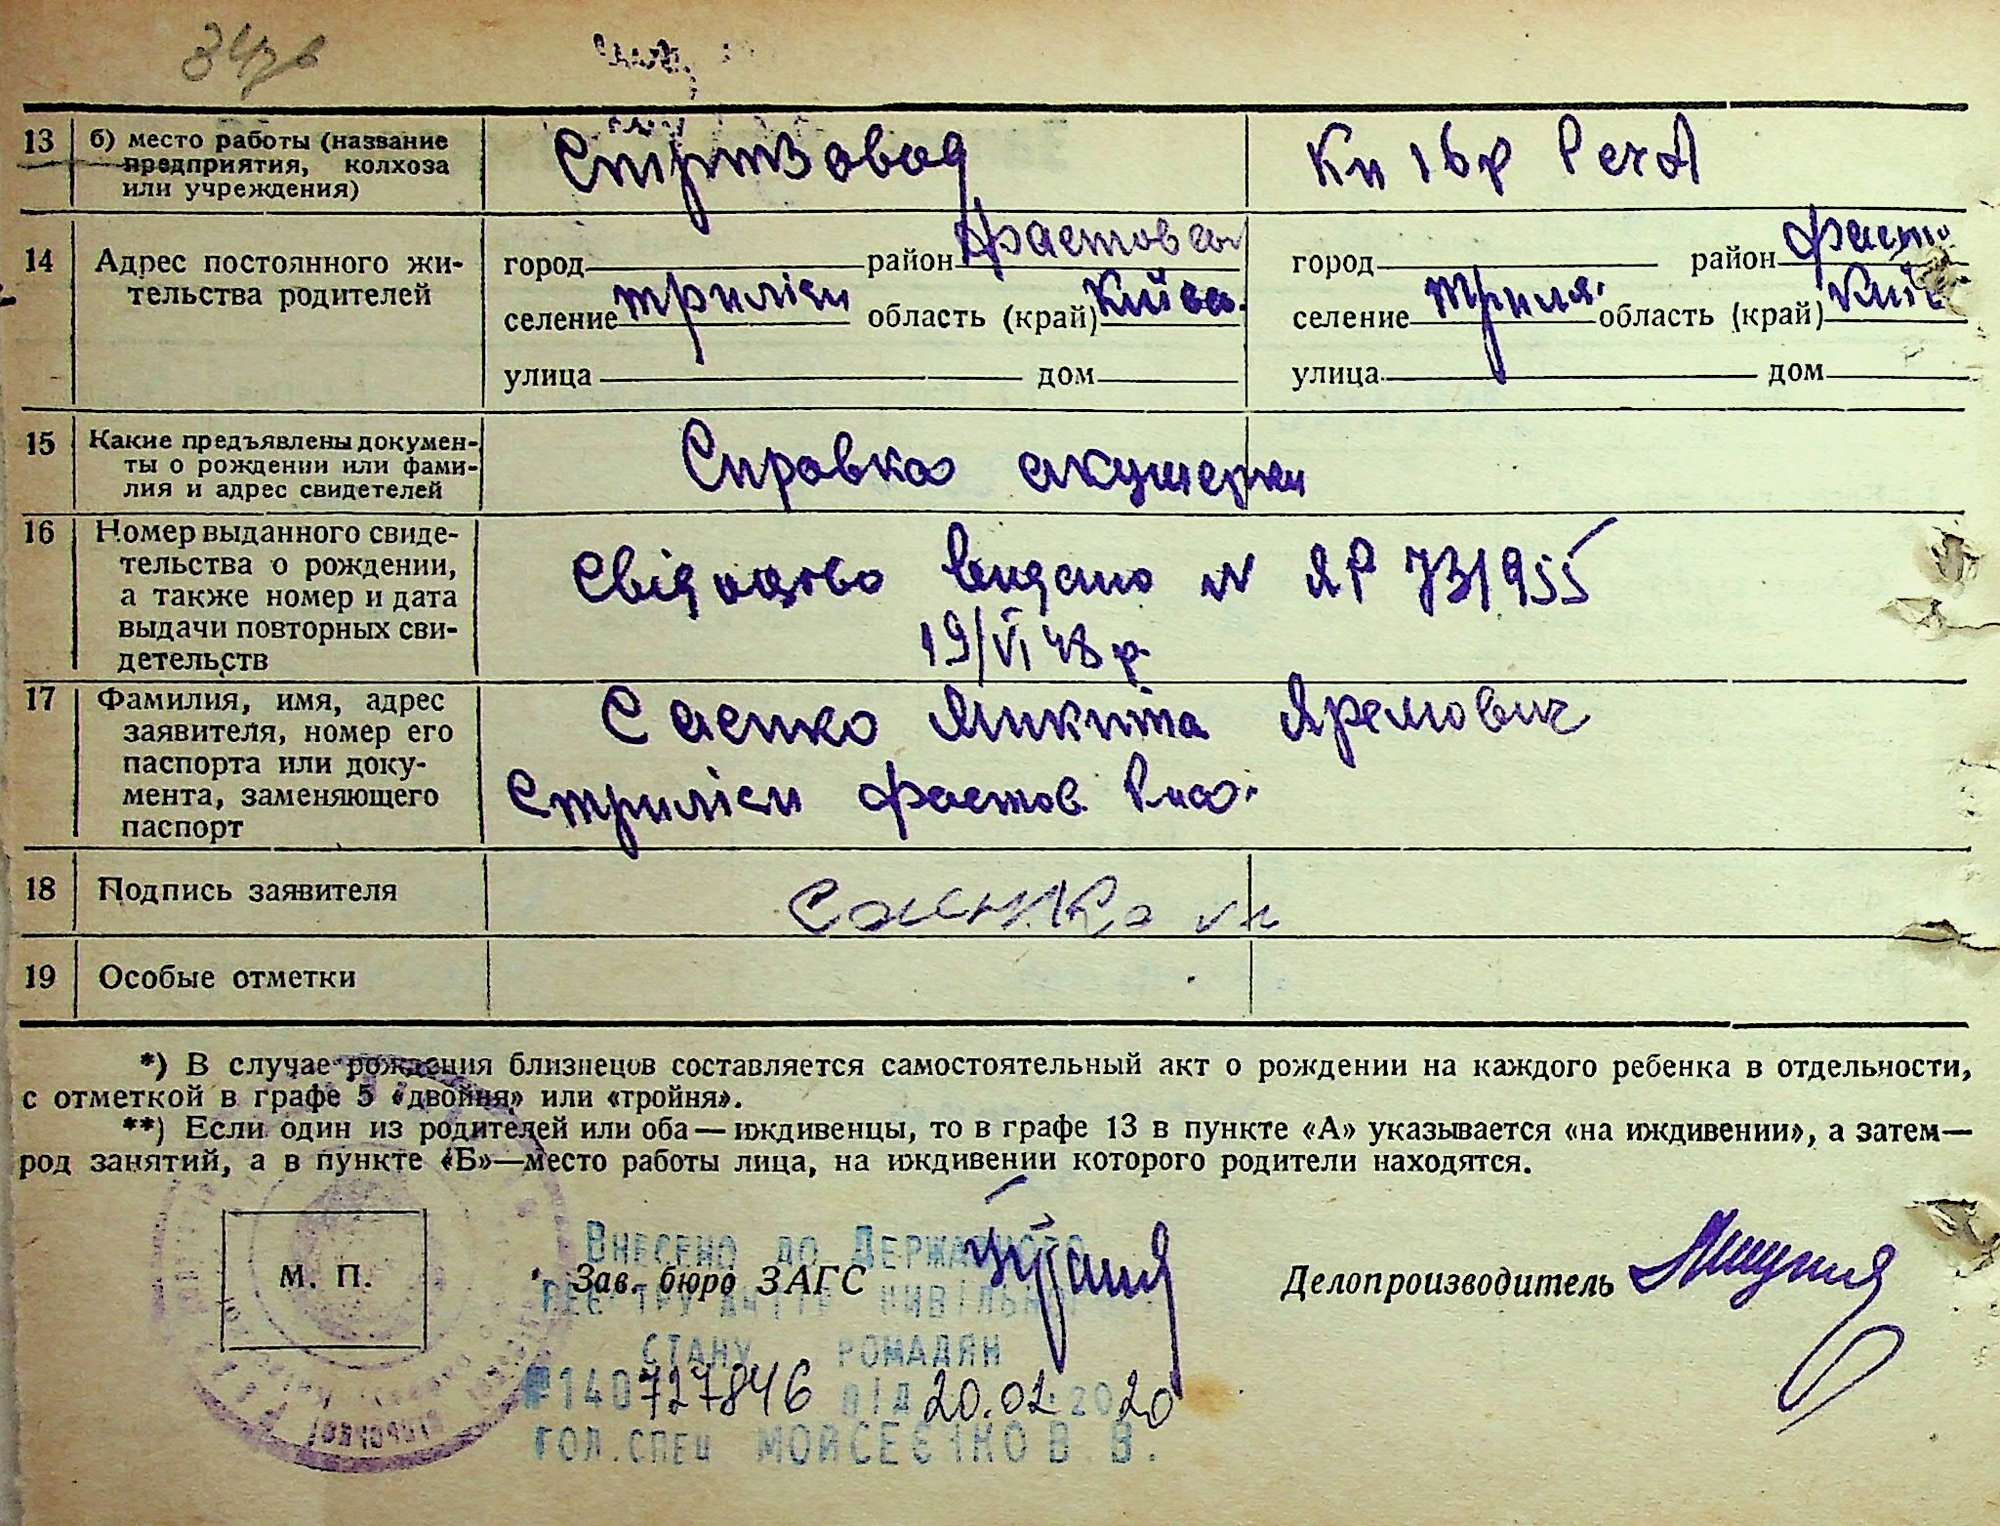 13 б) место работы (название
предприятия, колхоза
или учреждения)
Спиртзавод
14 Адрес постоянного жи-
тельства родителей
город район Фастовск
селение Трилісы область (край) Київс.
улица дом
город район Фасто
селение Триліс. область (край) Київ
улица дом
15 Какие предъявлены докумен-
ты о рождении или фами-
лия и адрес свидетелей
Справка акушерки
16 Номер выданного свиде-
тельства о рождении,
а также номер и дата
выдачи повторных сви-
детельств
Свідоцтво видано N ЯР 731955
19/VI 48 р.
17 Фамилия, имя, адрес
заявителя, номер его
паспорта или доку-
мента, заменяющего
паспорт
Саенко Микита Яремович
С Триліси Фастов.
18 Подпись заявителя
Саенко
19 Особые отметки
*) В случае рождения близнецов составляется самостоятельный акт о рождении на каждого ребенка в отдельности,
с отметкой в графе 5 «двойня» или «тройня».
**) Если один из родителей или оба — иждивенцы, то в графе 13 в пункте «А» указывается «на иждивении», а затем—
род занятий, а в пункте «Б»—место работы лица, на иждивении которого родители находятся.
М. П.
Зав. бюро ЗАГС
Делопроизводитель
Внесено до Державного
реєстру актів цивільного
стану громадян
№140727846 від 20.02.2020
гол.спец Мойсеєнко В. В.